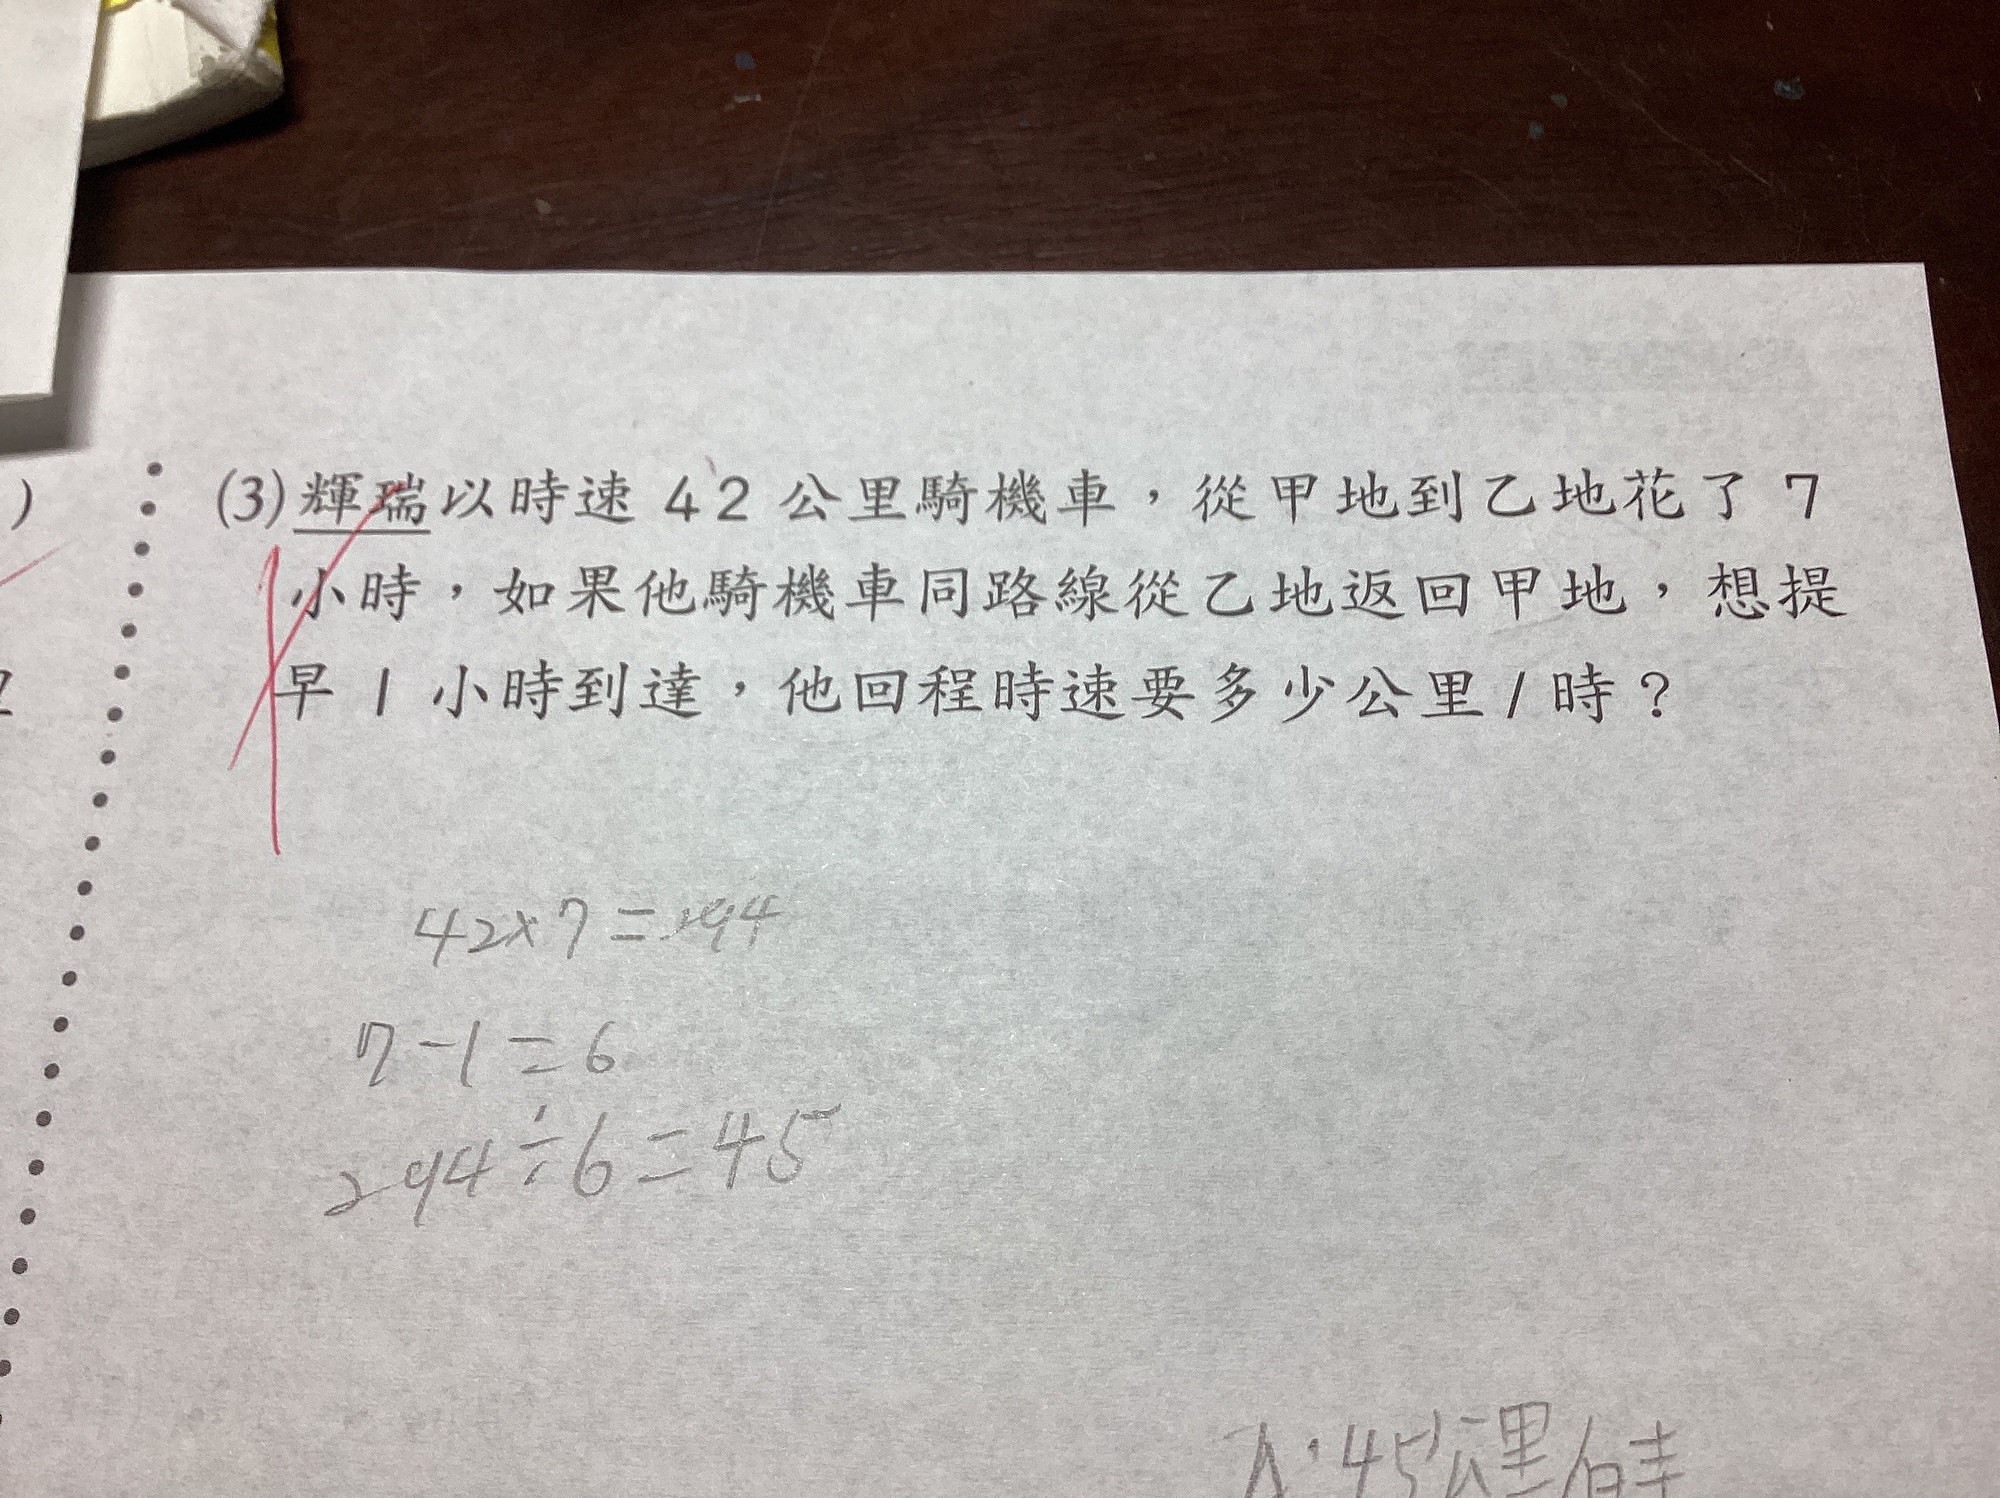 )
(3)輝瑞以時速 42 公里騎機車，從甲地到乙地花了 7
小時，如果他騎機車同路線從乙地返回甲地，想提
早 1 小時到達，他回程時速要多少公里/時？
42×7=294
7-1=6
294÷6=45
A:45公里/時